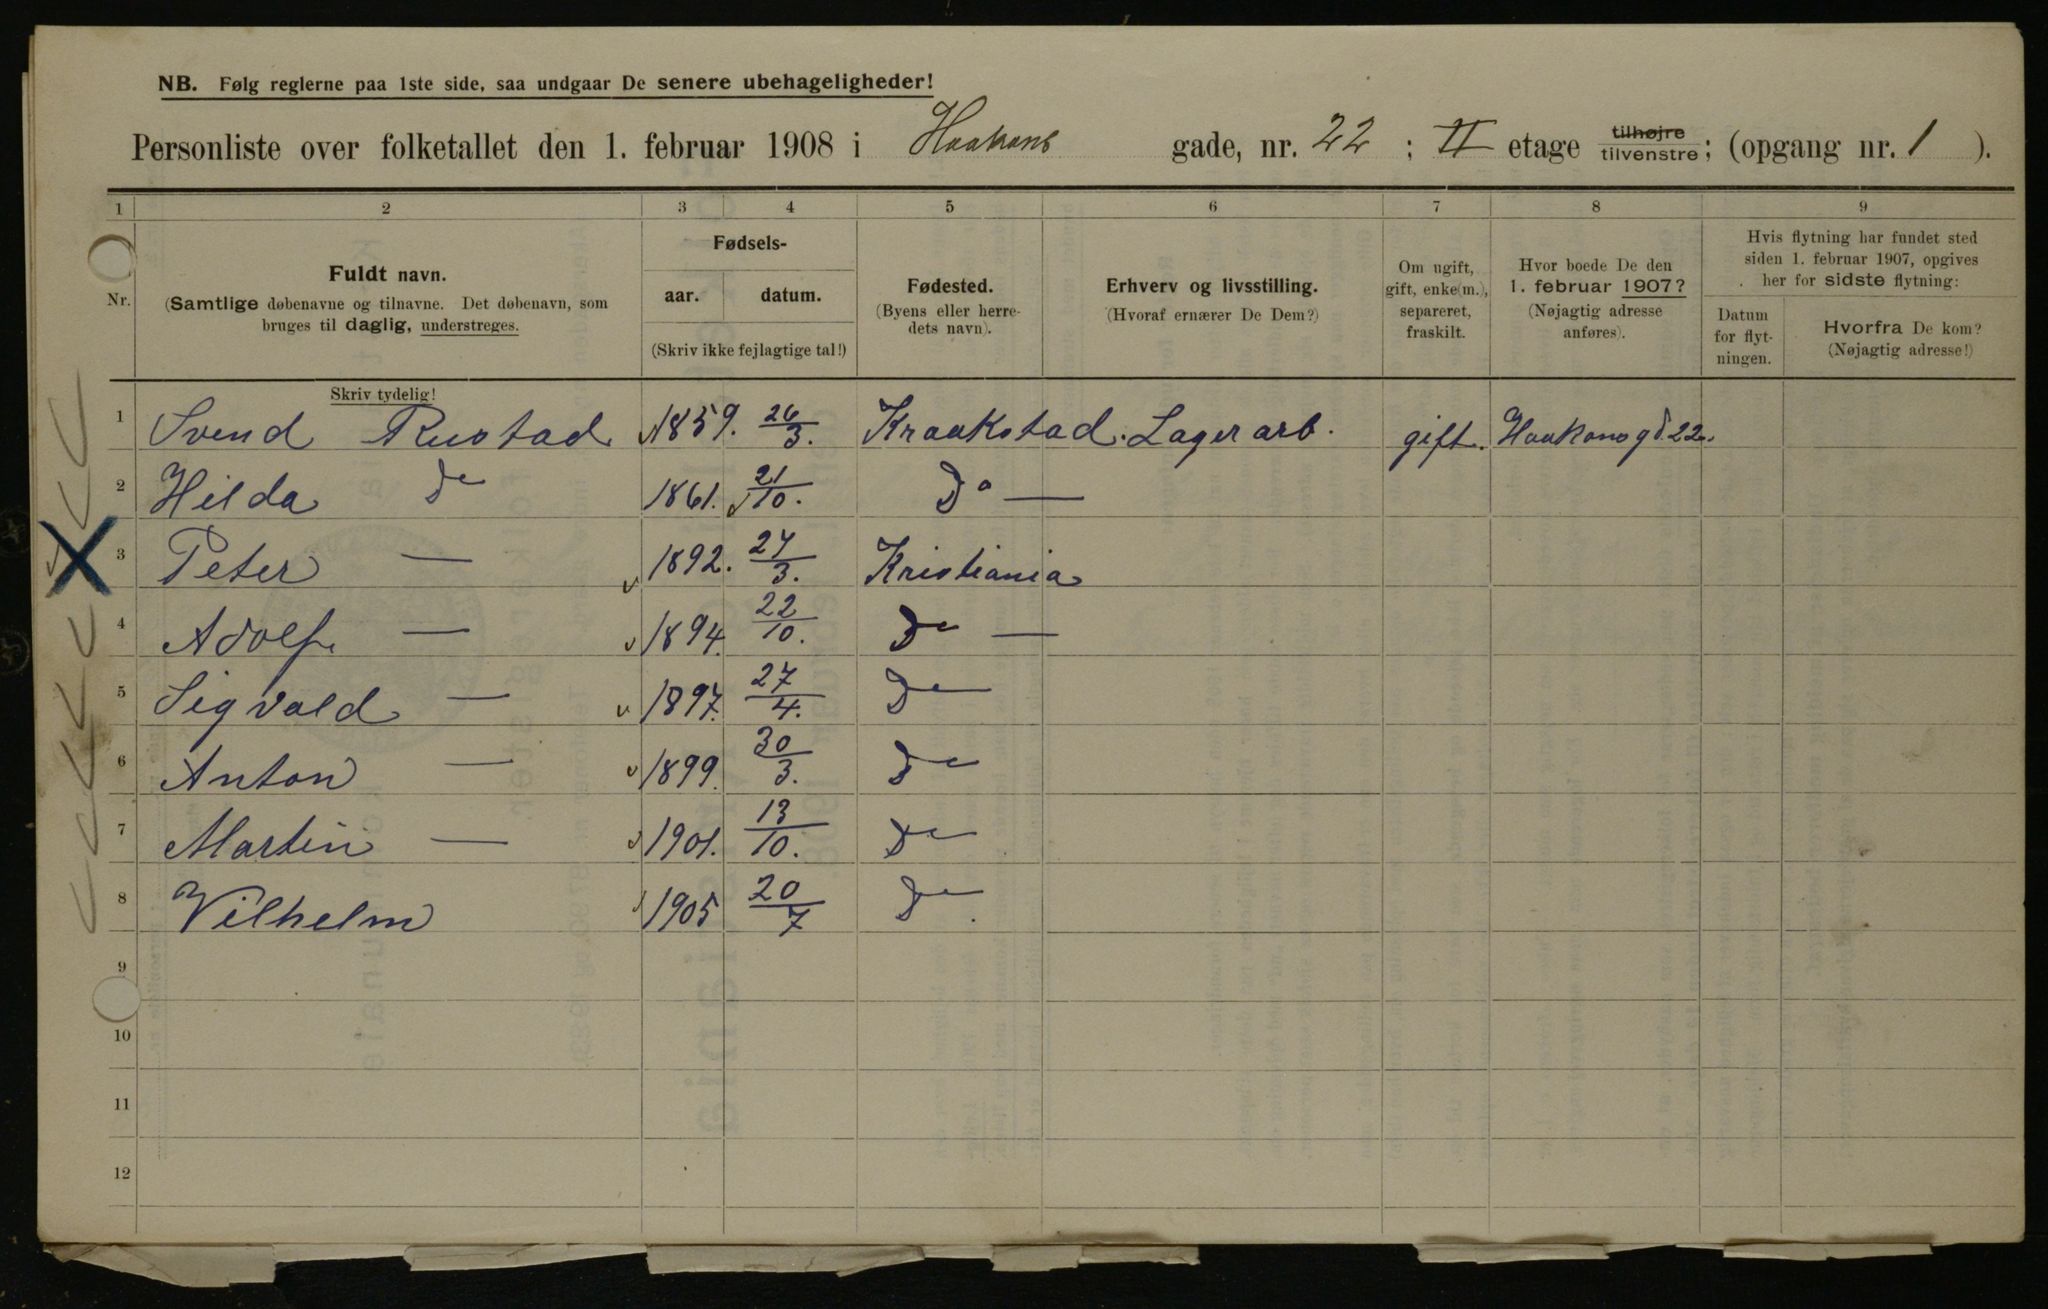 NB. Følg reglerne paa 1ste side, saa undgaar De senere ubehageligheder!
Personliste over folketallet den 1. februar 1908 i Haakons gade, nr. 22 ; II etage tilhøjre tilvenstre; (opgang nr. 1 ).
1 2 3 4 5 6 7 8 9
Nr.
Fuldt navn.
(Samtlige døbenavne og tilnavne. Det døbenavn, som
bruges til daglig, understreges.
Fødsels-
aar. datum.
(Skriv ikke fejlagtige tal!)
Fødested.
(Byens eller herre-
dets navn).
Erhverv og livsstilling.
(Hvoraf ernærer De Dem?)
Om ugift,
gift, enke(m.),
separeret,
fraskilt.
Hvor boede De den
1. februar 1907?
(Nøjagtig adresse
anføres).
Hvis flytning har fundet sted
siden 1. februar 1907, opgives
her for sidste flytning:
Datum
for flyt-
ningen.
Hvorfra De kom?
(Nøjagtig adresse!)
Skriv tydelig!
1 Svend Rustad 1859. 26/3. Kraakstad. Lagerarb. gift. Haakonsgd. 22.
2 Hilda Do 1861. 21/10. Do —
3 Peter — 1892. 27/3. Kristiania
4 Adolf — 1894. 22/10. Do —
5 Sigvald — 1897. 27/4. Do
6 Anton — 1899. 30/3. Do
7 Martin — 1901. 13/10. Do
8 Vilhelm 1905 20/7 Do
9
10
11
12